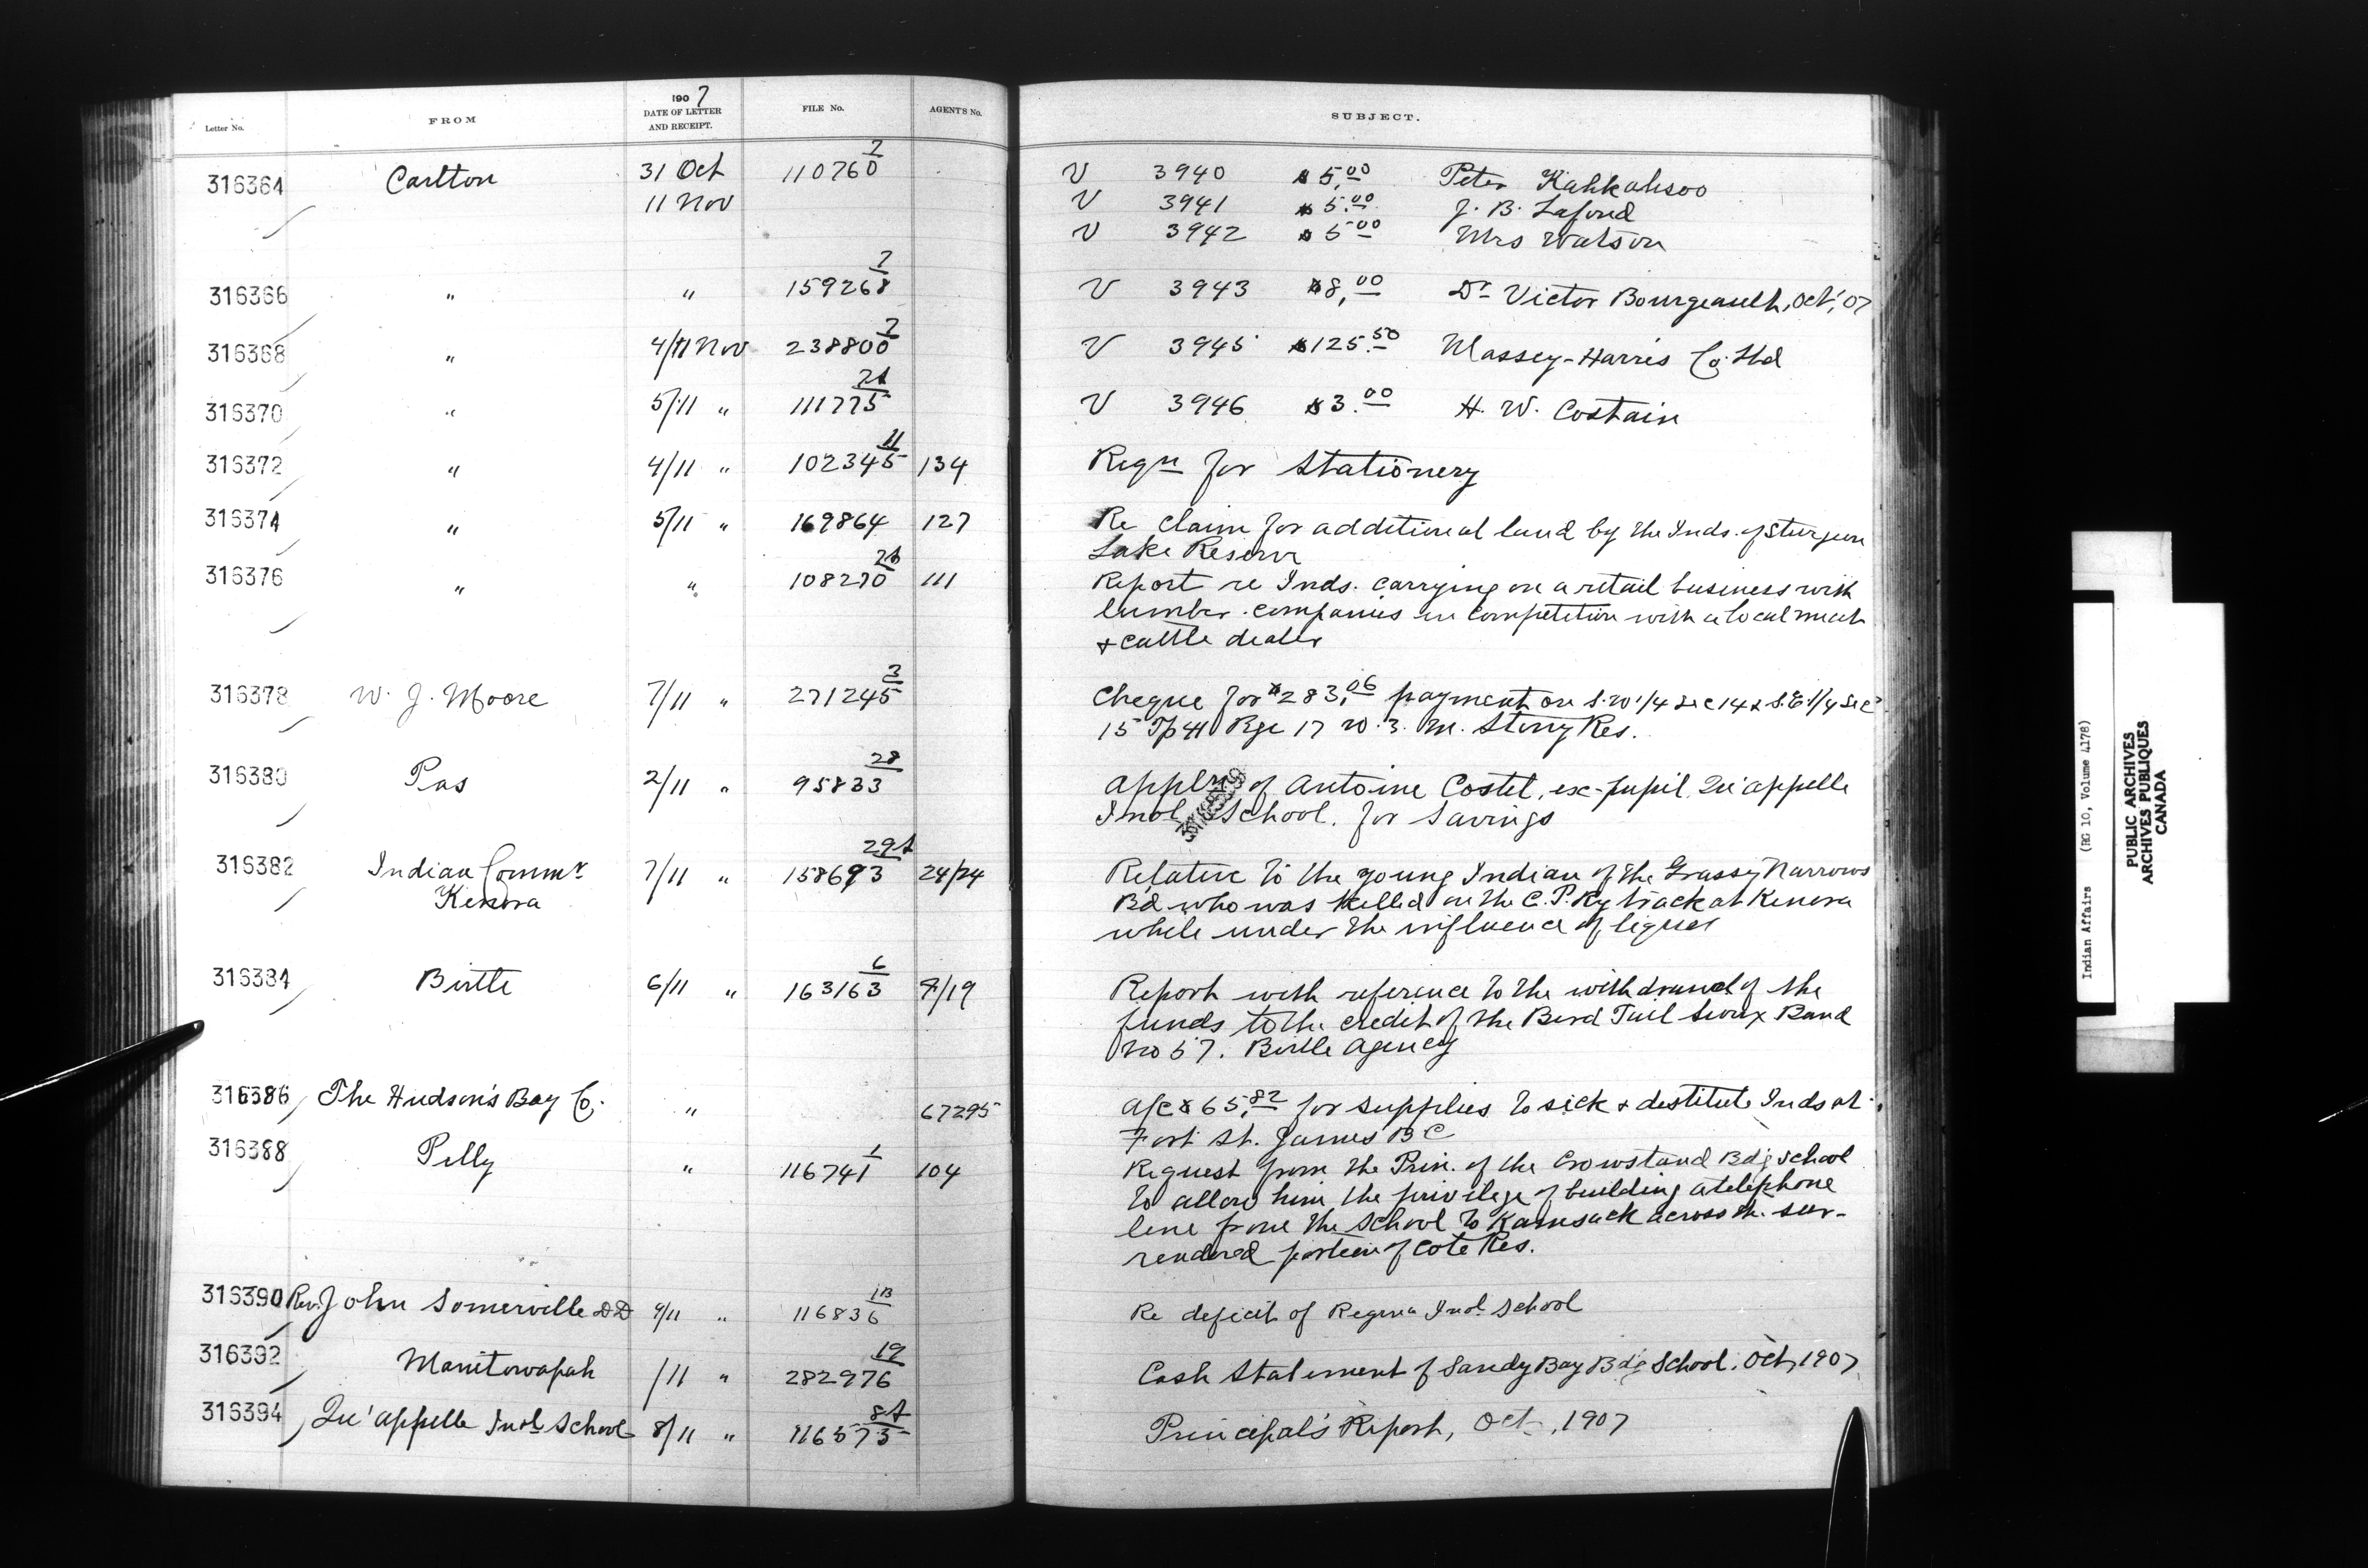 1907
Letter No. FROM DATE OF LETTER AND RECEIPT. FILE No. AGENTS No. SUBJECT.
316364 Carlton 31 Oct 110760/7 V 3940 $5.00 Peter Kahkahsoo
11 Nov V 3941 $5.00 J. B. Lafond
V 3942 $5.00 Mrs Watson
316366 " " 159268/7 V 3943 $8.00 Dr Victor Bourgeault, Oct, 07
316368 " 4/11 Nov 238800/7 V 3945 $125.50 Massey-Harris Co. Ltd
316370 " 5/11 " 111775 V 3946 $3.00 H. W. Costain
316372 " 4/11 " 102345/11 134 Reqn for Stationery
316374 " 5/11 " 169864 127 Re claim for additional land by the Inds. of Sturgeon
Lake Reserve
316376 " " 108270 111 Report re Inds. carrying on a retail business with
lumber companies in competition with a local meat
& cattle dealer
316378 W. J. Moore 7/11 " 271245/3 Cheque for $283.06 payment on S.W 1/4 Sec 14 & S.E 1/4 Sec
15 Tp 41 Rge 17 W. 3. M. Stony Res.
316380 Pas 2/11 " 95833/28 Appln of Antoine Costel, ex-pupil Qu'appelle
Indl School. for Savings
316382 Indian Commr 7/11 " 158693/29A 24/24 Relative to the young Indian of the Grassy Narrows
Kenora Bd who was killed on the C. P. Ry track at Kenora
while under the influence of liquor
316384 Birtle 6/11 " 163163/6 7/19 Report with reference to the withdrawal of the
funds to the credit of the Bird Tail Sioux Band
No 57. Birtle Agency
316386 The Hudson's Bay Co. " 67295 A/c $65.82 for supplies to sick & destitute Inds at
Fort St. James BC
316388 Pelly " 116741/1 104 Request from the Prin. of the Crowstand Bdg School
to allow him the privilege of building a telephone
line from the School to Kamsack across the sur-
rendered portion of Cote Res.
316390 Rev. John Somerville DD 9/11 " 116836/1B Re deficit of Regina Indl School
316392 Manitowapah /11 " 282976/19 Cash Statement of Sandy Bay Bdg School, Oct, 1907
316394 Qu'appelle Indl School 8/11 " 116573/8A Principal's Report, Oct, 1907
Indian Affairs (RG 10, Volume 4178)
PUBLIC ARCHIVES
ARCHIVES PUBLIQUES
CANADA